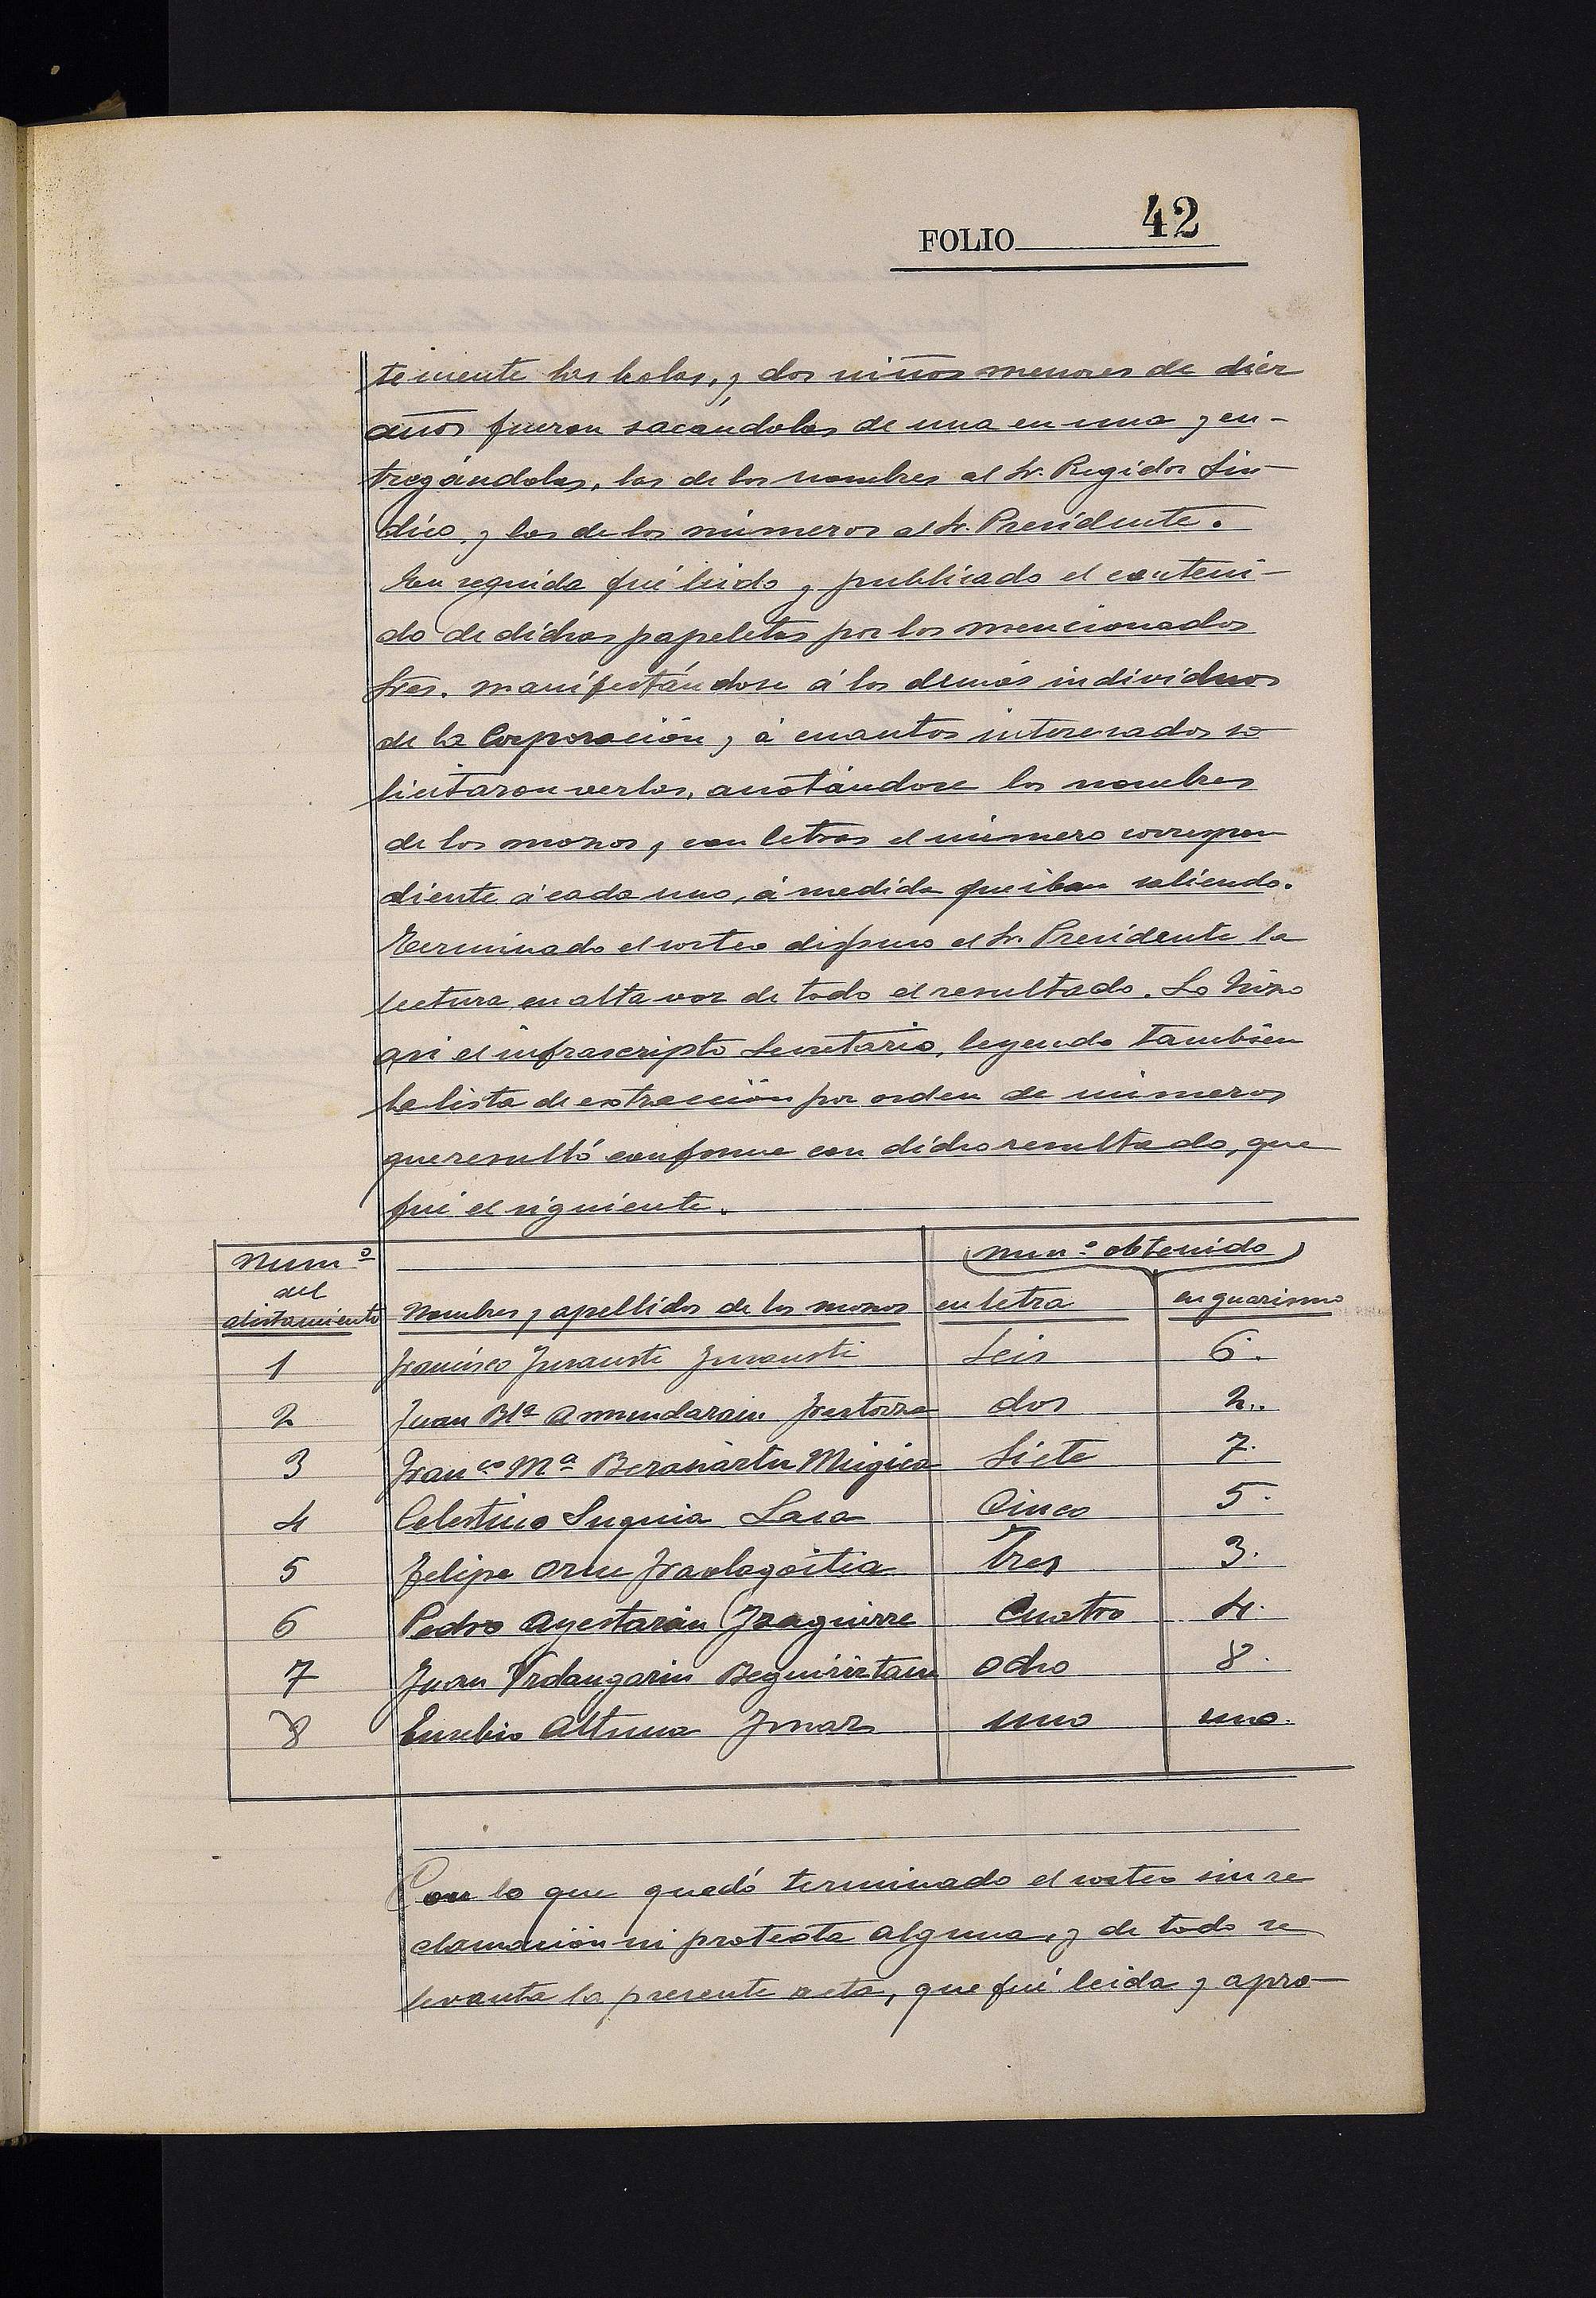 FOLIO 42
temente las bolas, y dos niños menores de diez
años fueron sacándolas de una en una y en-
tregándolas, las de los nombres al Sr. Regidor Sín-
dico, y las de los números al Sr. Presidente.
En seguida fué leido y publicado el conteni-
do de dichas papeletas por los mencionados
Sres. manifestándose á los demás individuos
de la Corporación, y á cuantos interesados so
licitaron verlas, anotándose los nombres
de los mozos, y con letras el número correspon
diente á cada uno, á medida que iban saliendo.
Terminado el sorteo dispuso el Sr. Presidente la
lectura en alta voz de todo el resultado. Lo hizo
asi el infrascripto Secretario, leyendo tambien
la lista de extracción por orden de números
que resultó conforme con dicho resultado, que
fué el siguiente.
Num.º del alistamiento
Nombres y apellidos de los mozos
num.º obtenido
en letra en guarismo
1 Francisco Inzausti Inzausti Seis 6.
2 Juan Bta Armendarain Irastorza dos 2.
3 Franco Mª Berasiartu Múgica Siete 7.
4 Celestino Suquia Lasa Cinco 5.
5 Felipe Oria Iraolagoitia Tres 3.
6 Pedro Ayestarán Izaguirre Cuatro 4.
7 Juan Urdangarin Beguiristain Ocho 8.
8 Eusebio Altuna Imaz uno uno.
Con lo que quedó terminado el sorteo sin re
clamación ni protesta alguna, y de todo se
levanta la presente acta, que fué leida y apro-